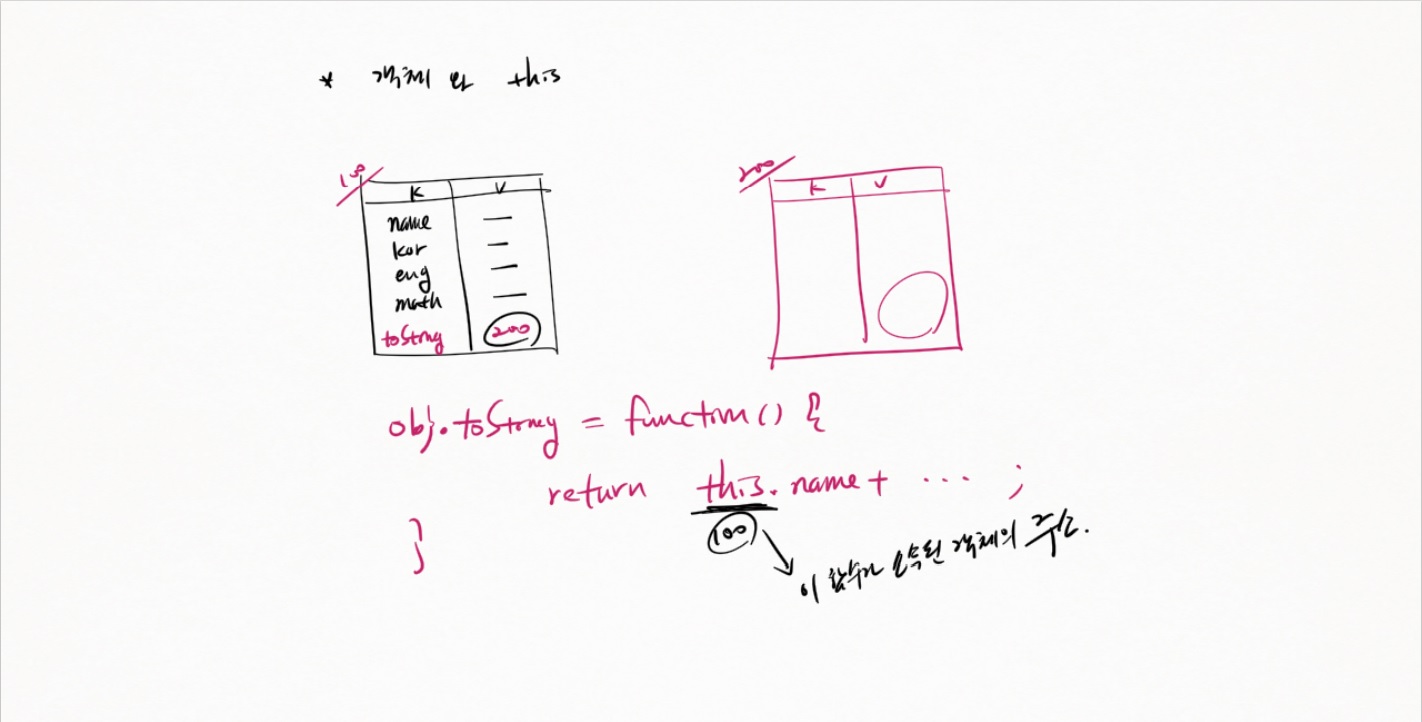 * 객체 와 this
100
K V
name —
kor —
eng —
math —
toString 200
200
K V
obj.toString = function() {
return this.name + ... ;
}
100
이 함수가 소속된 객체의 주소.